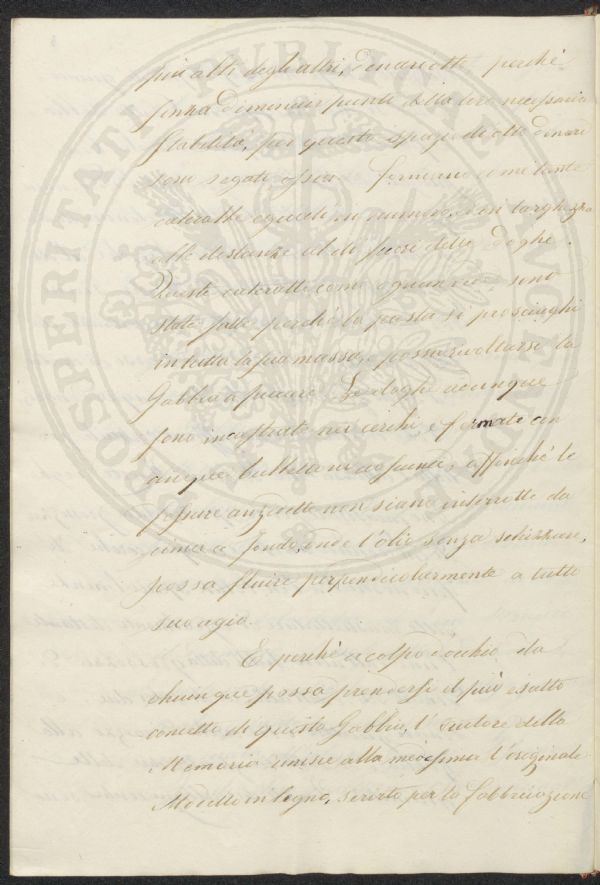 più alti degli altri, denari otto perché
senza diminuir punto della loro necessaria
stabilità, per questo spazio di otto denari
sono segati essi formano come tante
cateratte eguali in numero, ed in larghezza
alle distanze al di fuori delle Doghe.
Queste cateratte come ognun vede sono
state fatte perché la pasta si prosciughi
in tutta la sua massa, e possa rivoltarsi la
Gabbia a piacere. Le doghe adunque
sono incastrate nei cerchi, e fermate con
cinque bullette ad ogni punto, affinché le
fessure anzidette non siano interrotte da
cima a fondo, onde l'olio senza schizzare,
possa fluire perpendicolarmente a tutto
suo agio.
E perché a colpo d'occhio da
chiunque possa prendersi il più esatto
concetto di questa Gabbia, l'Autore della
Memoria unisce alla medesima l'originale
Modello in legno, servito per la fabbricazione
PROSPERITATI PVBLICAE